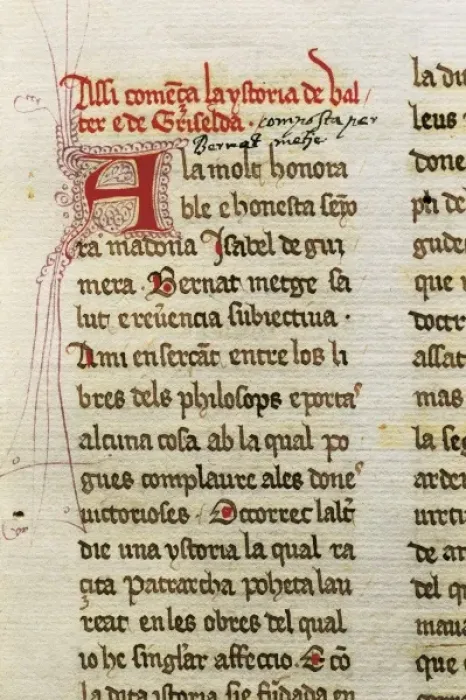 Assi comēça la ystoria de Val
ter e de Griselda · composta per
Bernat metje
A la molt honora
ble e honesta seño
ra madona Isabel de gui
mera · Bernat metge sa
lut e reuēencia subiectiua ·
A mi en sercāt entre los li
bres dels philosofs e poetas
alcuna cosa ab la qual po
gues complaure a les dones
uirtuoses · Occorrec laltr̄
die una ystoria la qual ra
cita Patrarcha poheta lau
reat en les obres del qual
io he singlar affeccio · E cō
la dita istoria sie fūdada en
la du
leus
done
gude
que
doctr
assat
mas
la seg
arden
uirtu
de ar
del q
maua
que